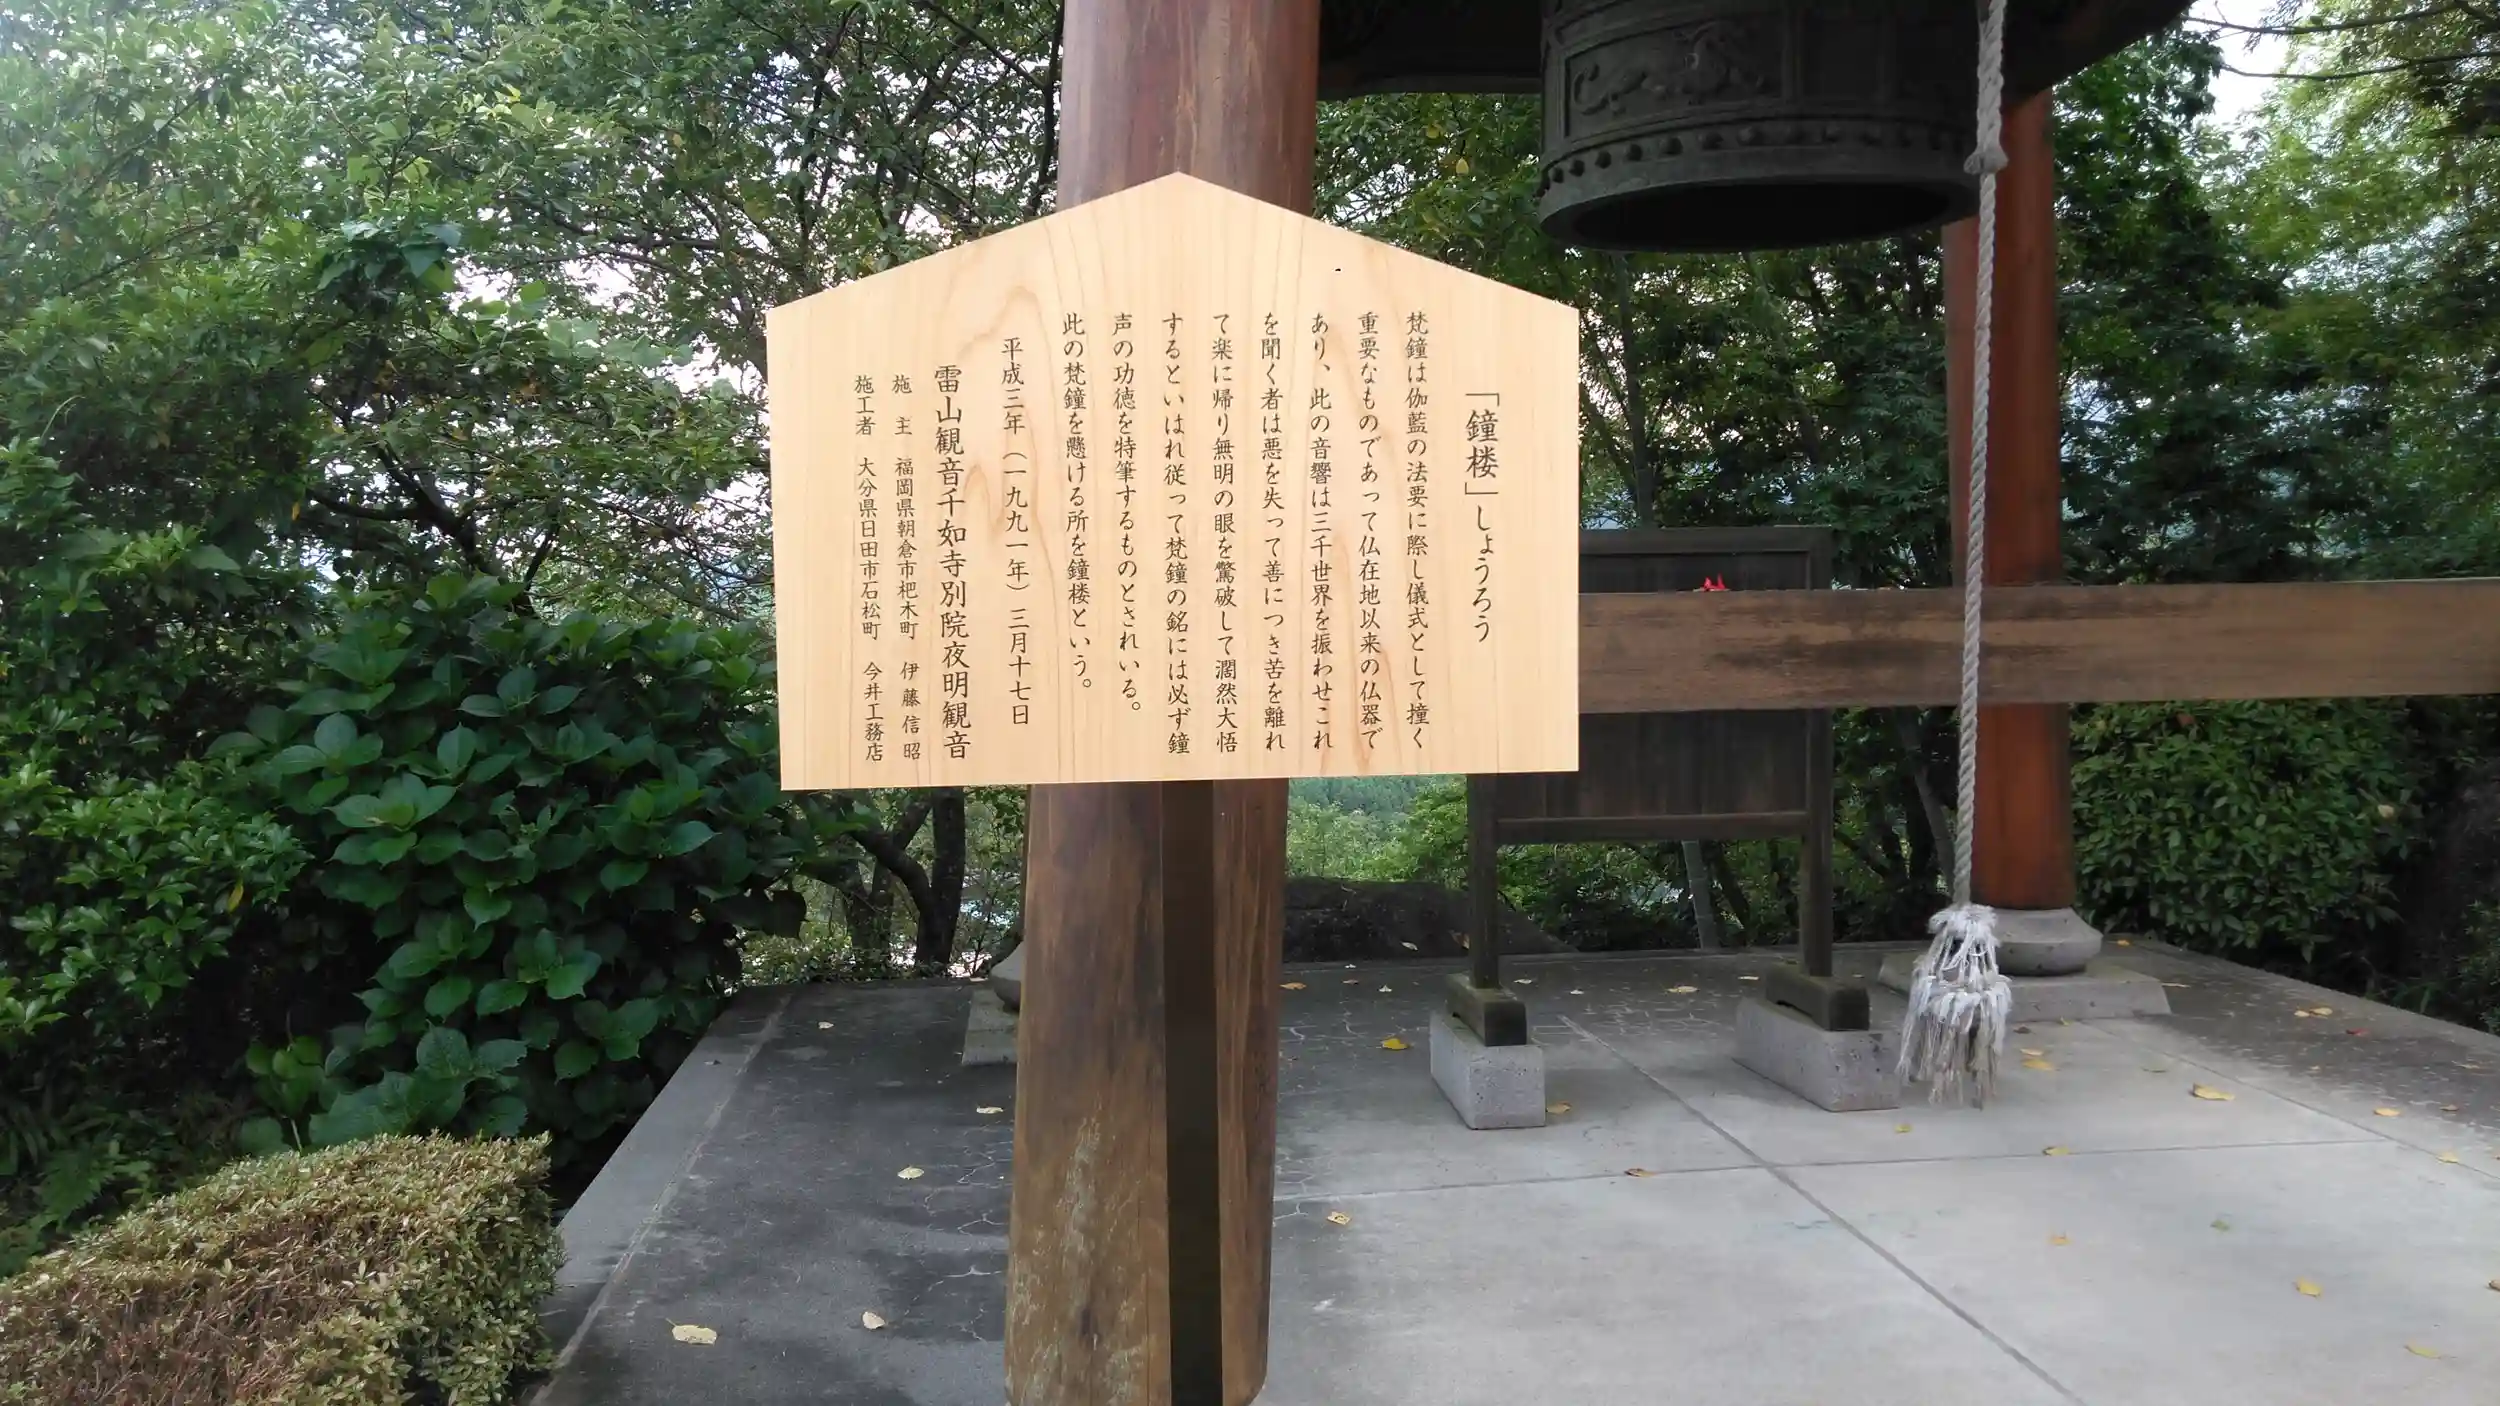 「鐘楼」しょうろう
梵鐘は伽藍の法要に際し儀式として撞く
重要なものであって仏在地以来の仏器で
あり、此の音響は三千世界を振わせこれ
を聞く者は悪を失って善につき苦を離れ
て楽に帰り無明の眼を驚破して濶然大悟
するといはれ従って梵鐘の銘には必ず鐘
声の功徳を特筆するものとされいる。
此の梵鐘を懸ける所を鐘楼という。
平成三年（一九九一年）三月十七日
雷山観音千如寺別院夜明観音
施 主 福岡県朝倉市杷木町 伊藤信昭
施工者 大分県日田市石松町 今井工務店